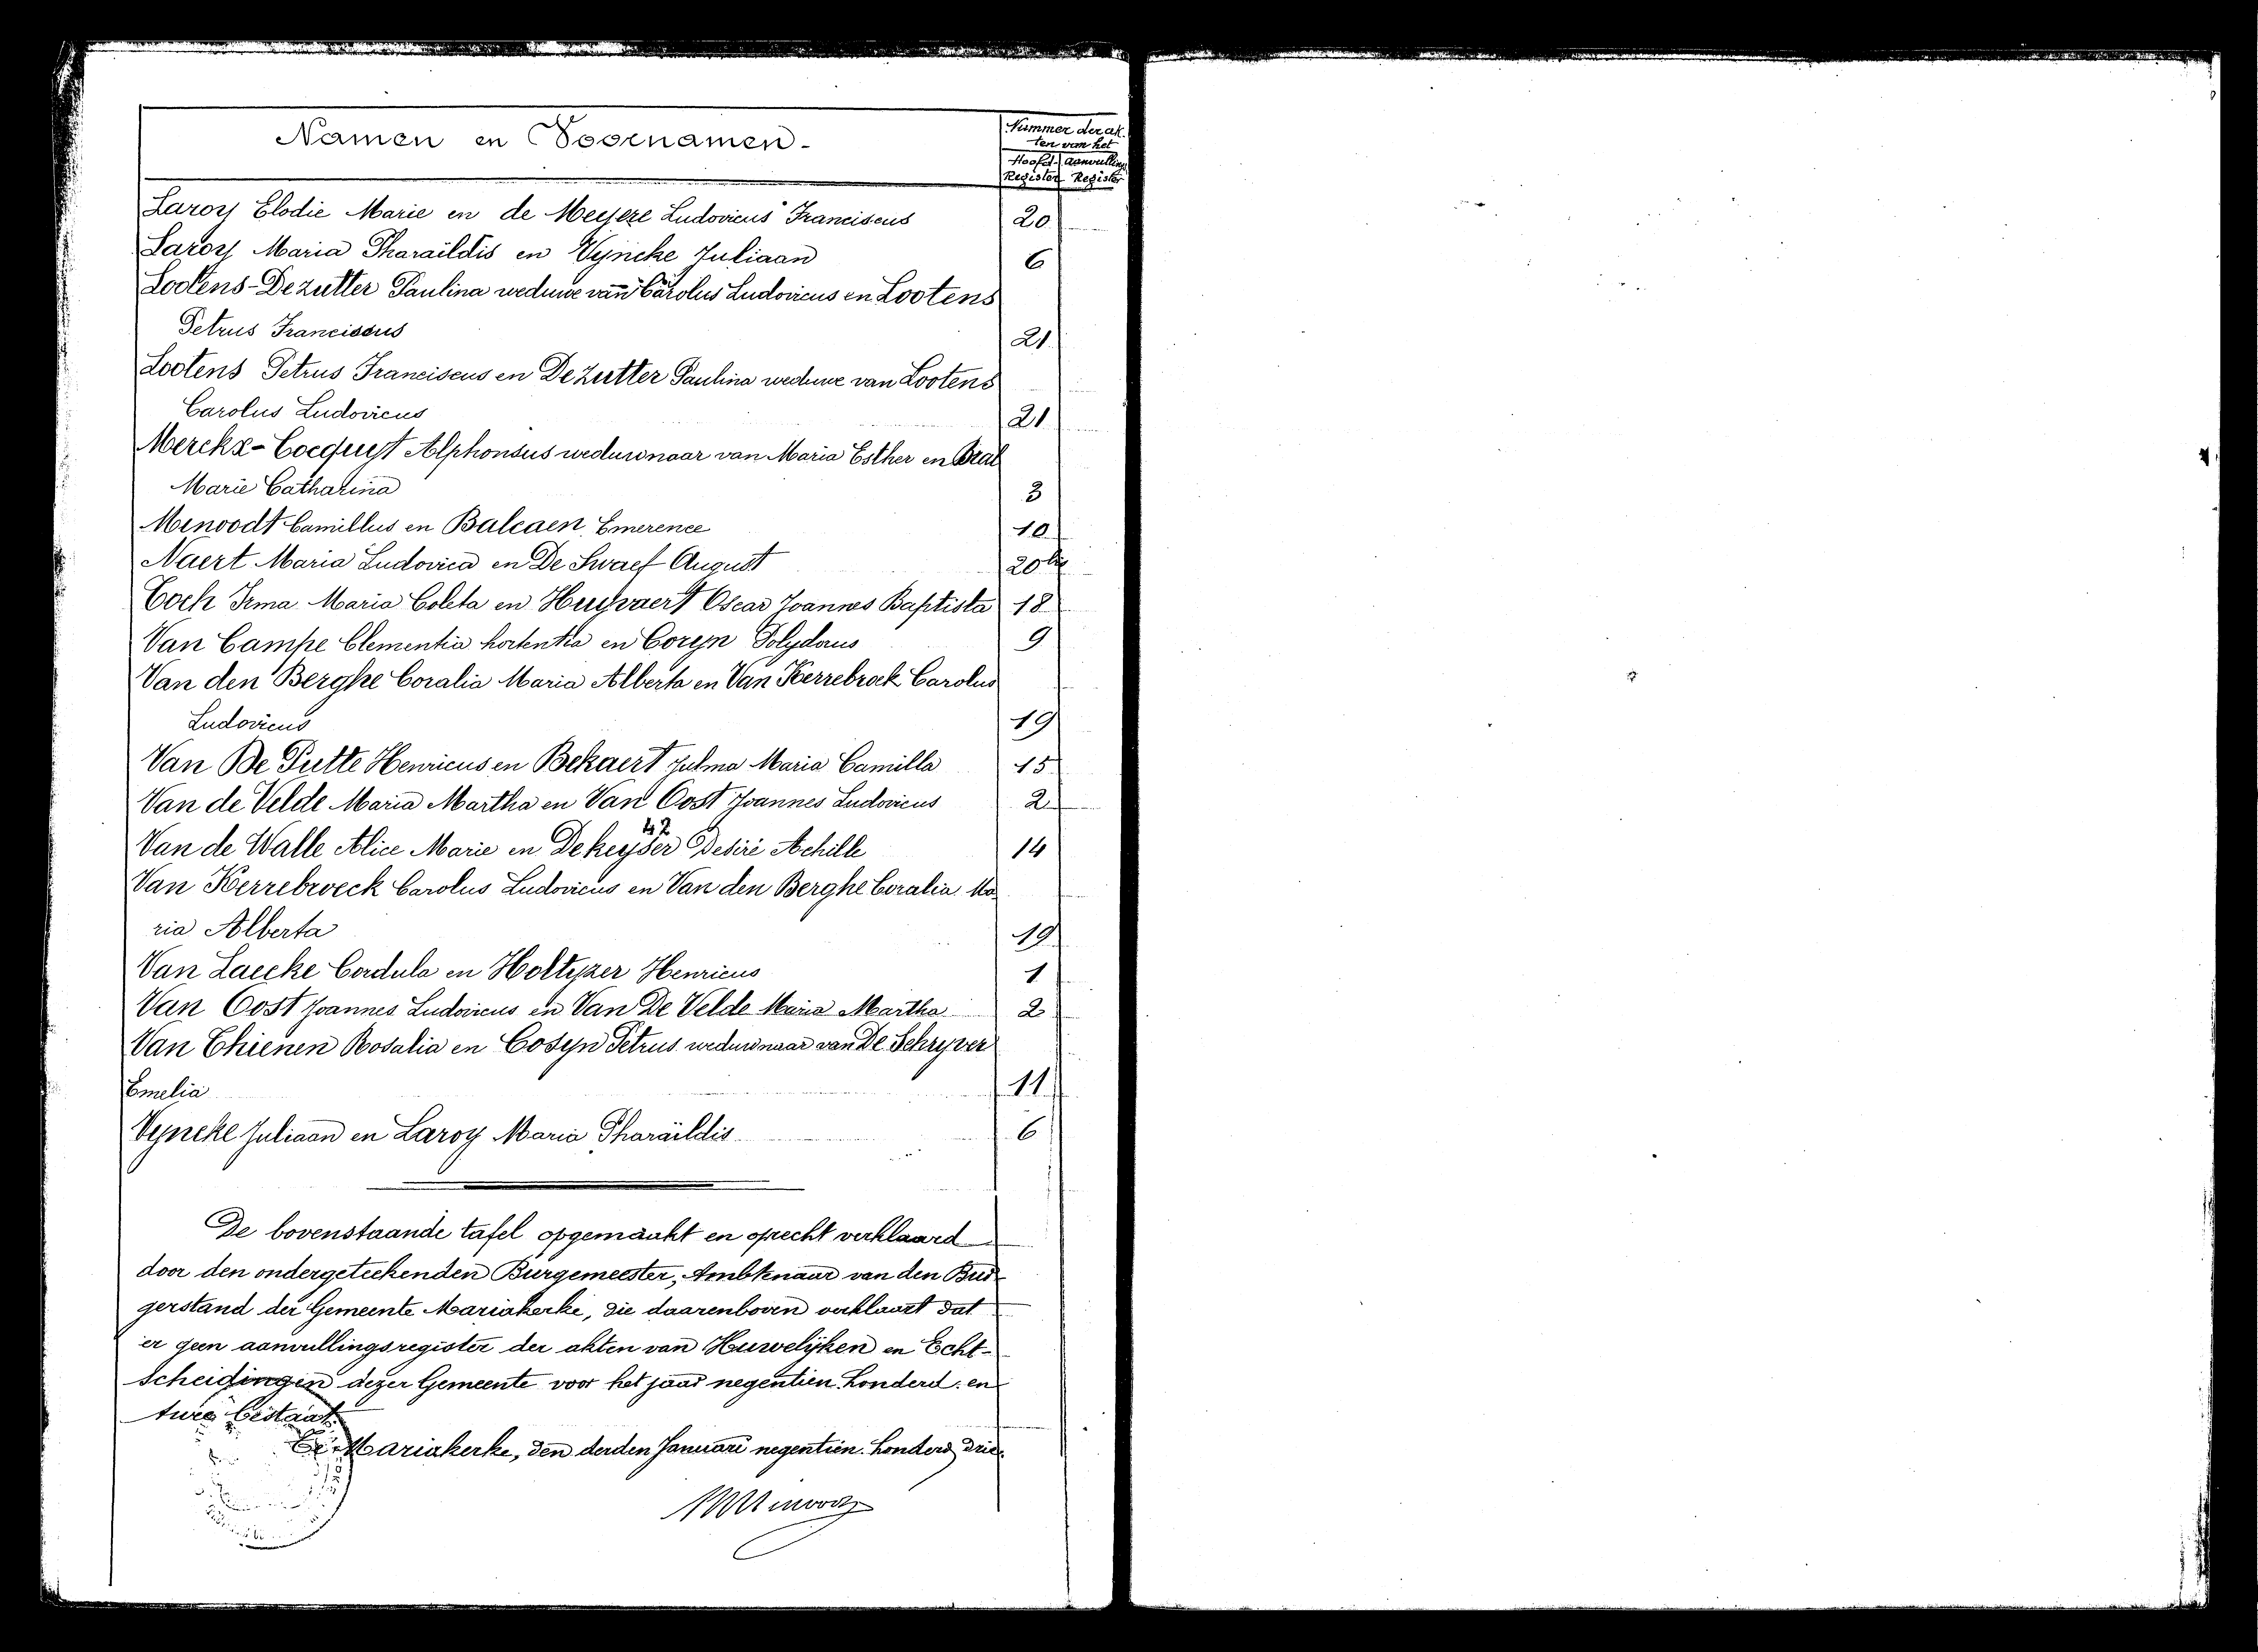 Namen en Voornamen-
Nummer der ak.
ten van het
Hoofd- aanvulling
Register Register
Laroy Elodie Marie en de Meyere Ludovicus Franciscus 20
Laroy Maria Pharaïldis en Vyncke Juliaan 6
Lootens-Dezutter Paulina weduwe van Carolus Ludovicus en Lootens
Petrus Franciscus 21
Lootens Petrus Franciscus en Dezutter Paulina weduwe van Lootens
Carolus Ludovicus 21
Merckx-Cocquyt Alphonsus weduwnaar van Maria Esther en Bral
Marie Catharina 3
Minoodt Camillus en Balcaen Emerence 10
Naert Maria Ludovica en De Swaef August 20bis
Tock Irma Maria Coleta en Huyvaert Oscar Joannes Baptista 18
Van Campe Clementia hortentia en Coryn Polydorus 9
Van den Berghe Coralia Maria Alberta en Van Kerrebroek Carolus
Ludovicus 19
Van De Putte Henricus en Bekaert Julma Maria Camilla 15
Van de Velde Maria Martha en Van Oost Joannes Ludovicus 2
42
Van de Walle Alice Marie en Dekeyser Desiré Achille 14
Van Kerrebroeck Carolus Ludovicus en Van den Berghe Coralia Ma
ria Alberta 19
Van Laecke Cordula en Holtyzer Henricus 1
Van Oost Joannes Ludovicus en Van De Velde Maria Martha 2
Van Thienen Rosalia en Cosyn Petrus weduwnaar van De Schryver
Emelia 11
Vyncke Juliaan en Laroy Maria Pharaïldis 6
De bovenstaande tafel opgemaakt en oprecht verklaard
door den ondergeteekenden Burgemeester, Ambtenaar van den Bur-
gerstand der Gemeente Mariakerke, die daarenboven verklaart dat
er geen aanvullingsregister der akten van Huwelijken en Echt-
scheidingen dezer Gemeente voor het jaar negentien honderd en
twee bestaat.
Te Mariakerke, den derden Januari negentien honderd drie.